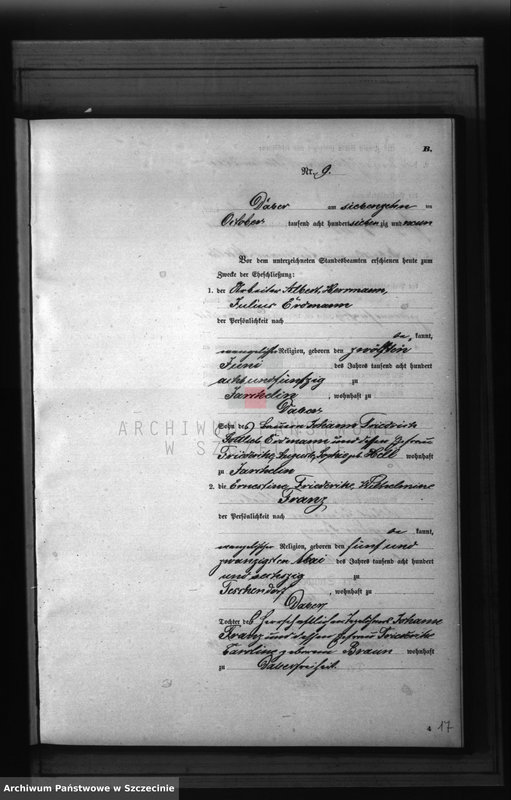 B.
Nr. 9.
Daber am siebenzehn ten
October tausend acht hundert siebenzig und neun
Vor dem unterzeichneten Standesbeamten erschienen heute zum
Zwecke der Eheschließung:
1. der Arbeiter Albert, Herrmann,
Julius Erdmann
der Persönlichkeit nach
be kannt,
evangelischer Religion, geboren den zwölften
Juni des Jahres tausend acht hundert
acht und fünfzig zu
Jarchelin, wohnhaft zu
Daber
Sohn des Johann Friedrich
Gottlieb Erdmann und dessen Ehefrau
Friedrike, Auguste, Sophie geb. wohnhaft
zu Jarchelin
2. die Ernestine, Friederike, Wilhelmine
Franz
der Persönlichkeit nach
be kannt,
evangelischer Religion, geboren den fünf und
zwanzigsten Mai des Jahres tausend acht hundert
und sechszig zu
Teschendorf, wohnhaft zu
Daber
Tochter des herrschaftlichen Johann
Franz und dessen Ehefrau Friedrike
Caroline geborenen Braun wohnhaft
zu Daberfreiheit.
4 17
ARCHIWUM PAŃSTWOWE
W SZCZECINIE
Archiwum Państwowe w Szczecinie